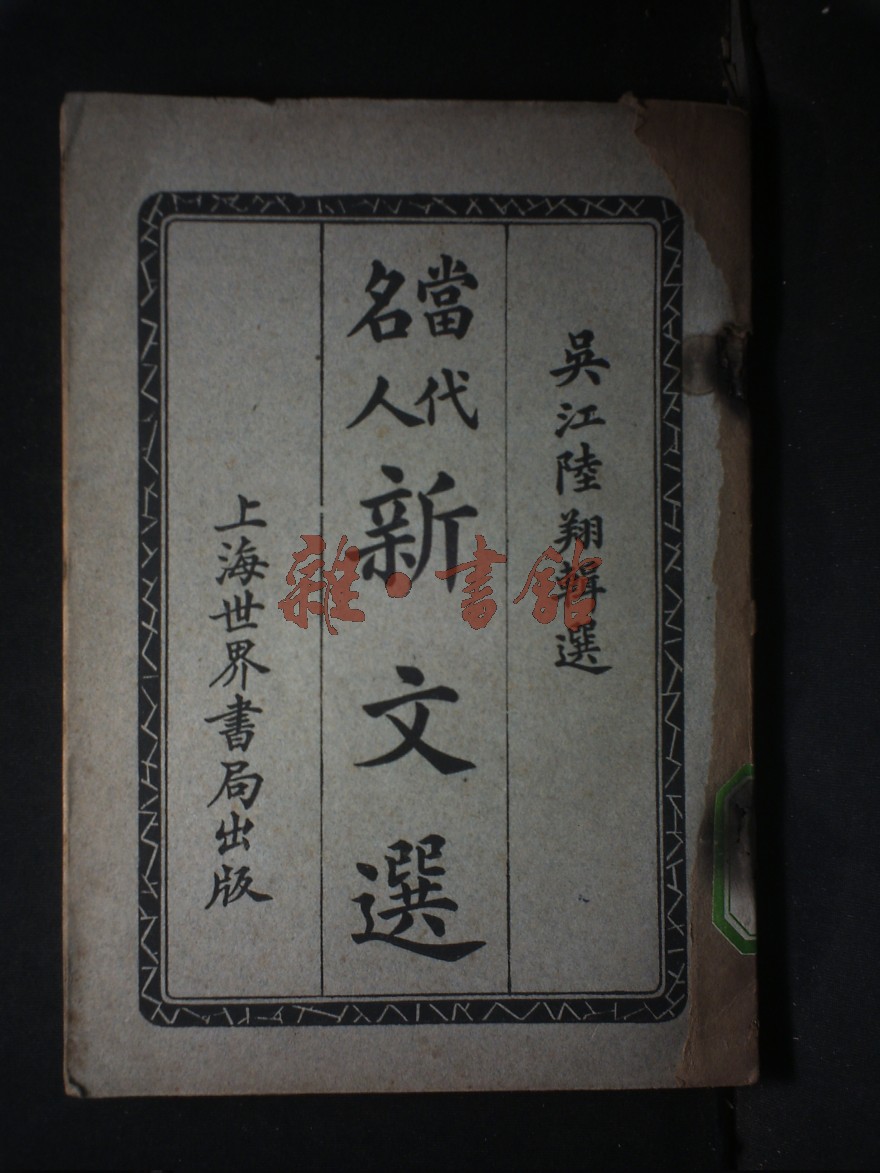 吳江陸翔輯選
當代名人新文選
上海世界書局出版
雜·書館